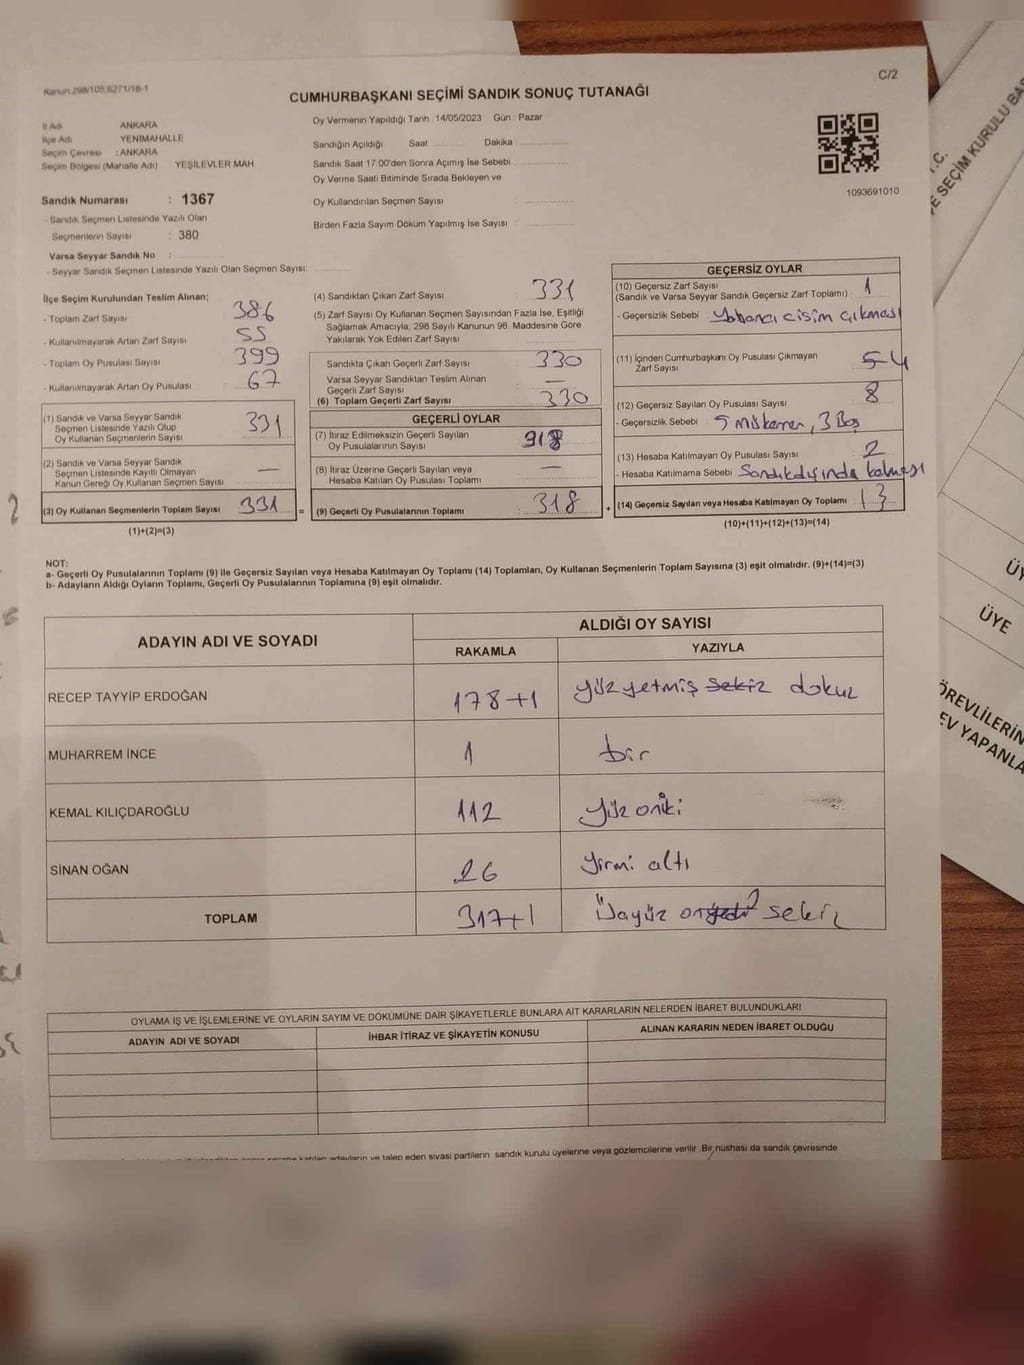 Kanun:298/105,6271/16-1
C/2
CUMHURBAŞKANI SEÇİMİ SANDIK SONUÇ TUTANAĞI
İl Adı : ANKARA
İlçe Adı : YENİMAHALLE
Seçim Çevresi : ANKARA
Seçim Bölgesi (Mahalle Adı) YEŞİLEVLER MAH
Sandık Numarası : 1367
- Sandık Seçmen Listesinde Yazılı Olan
Seçmenlerin Sayısı : 380
Varsa Seyyar Sandık No :
- Seyyar Sandık Seçmen Listesinde Yazılı Olan Seçmen Sayısı:
Oy Vermenin Yapıldığı Tarih : 14/05/2023 Gün : Pazar
Sandığın Açıldığı Saat Dakika
Sandık Saat 17:00'den Sonra Açımış İse Sebebi :
Oy Verme Saati Bitiminde Sırada Bekleyen ve
Oy Kullandırılan Seçmen Sayısı :
Birden Fazla Sayım Döküm Yapılmış İse Sayısı :
1093691010
T.C.
SEÇİM KURULU
İlçe Seçim Kurulundan Teslim Alınan;
- Toplam Zarf Sayısı 386
- Kullanılmayarak Artan Zarf Sayısı 55
- Toplam Oy Pusulası Sayısı 399
- Kullanılmayarak Artan Oy Pusulası 67
(1) Sandık ve Varsa Seyyar Sandık
Seçmen Listesinde Yazılı Olup
Oy Kullanan Seçmenlerin Sayısı 331
(2) Sandık ve Varsa Seyyar Sandık
Seçmen Listesinde Kayıtlı Olmayan
Kanun Gereği Oy Kullanan Seçmen Sayısı —
(3) Oy Kullanan Seçmenlerin Toplam Sayısı 331
(1)+(2)=(3)
=
(4) Sandıktan Çıkan Zarf Sayısı 331
(5) Zarf Sayısı Oy Kullanan Seçmen Sayısından Fazla İse, Eşitliği
Sağlamak Amacıyla, 298 Sayılı Kanunun 98. Maddesine Göre
Yakılarak Yok Edilen Zarf Sayısı
Sandıkta Çıkan Geçerli Zarf Sayısı : 330
Varsa Seyyar Sandıktan Teslim Alınan
Geçerli Zarf Sayısı : —
(6) Toplam Geçerli Zarf Sayısı : 330
GEÇERLİ OYLAR
(7) İtiraz Edilmeksizin Geçerli Sayılan
Oy Pusulalarının Sayısı 318
(8) İtiraz Üzerine Geçerli Sayılan veya
Hesaba Katılan Oy Pusulası Toplamı —
(9) Geçerli Oy Pusulalarının Toplamı 318
+
GEÇERSİZ OYLAR
(10) Geçersiz Zarf Sayısı
(Sandık ve Varsa Seyyar Sandık Geçersiz Zarf Toplamı) : 1
- Geçersizlik Sebebi : Yabancı cisim çıkması
(11) İçinden Cumhurbaşkanı Oy Pusulası Çıkmayan
Zarf Sayısı
(12) Geçersiz Sayılan Oy Pusulası Sayısı : 8
- Geçersizlik Sebebi : 5 mükerrer, 3 Boş
(13) Hesaba Katılmayan Oy Pusulası Sayısı : 2
- Hesaba Katılmama Sebebi : Sandıkdışında kalması
(14) Geçersiz Sayılan veya Hesaba Katılmayan Oy Toplamı : 13
(10)+(11)+(12)+(13)=(14)
NOT:
a- Geçerli Oy Pusulalarının Toplamı (9) ile Geçersiz Sayılan veya Hesaba Katılmayan Oy Toplamı (14) Toplamları, Oy Kullanan Seçmenlerin Toplam Sayısına (3) eşit olmalıdır. (9)+(14)=(3)
b- Adayların Aldığı Oyların Toplamı, Geçerli Oy Pusulalarının Toplamına (9) eşit olmalıdır.
ADAYIN ADI VE SOYADI
ALDIĞI OY SAYISI
RAKAMLA YAZIYLA
RECEP TAYYİP ERDOĞAN 178+1 yüzyetmiş sekiz dokuz
MUHARREM İNCE 1 bir
KEMAL KILIÇDAROĞLU 112 yüz oniki
SİNAN OĞAN 26 yirmi altı
TOPLAM 317+1 Üçyüz onyedi sekiz
ÜYE
GÖREVLİLERİN
OYLAMA İŞ VE İŞLEMLERİNE VE OYLARIN SAYIM VE DÖKÜMÜNE DAİR ŞİKAYETLERLE BUNLARA AİT KARARLARIN NELERDEN İBARET BULUNDUKLARI
ADAYIN ADI VE SOYADI İHBAR İTİRAZ VE ŞİKAYETİN KONUSU ALINAN KARARIN NEDEN İBARET OLDUĞU
katılan adayların ve talep eden siyasi partilerin sandık kurulu üyelerine veya gözlemcilerine verilir. Bir nüshası da sandık çevresinde